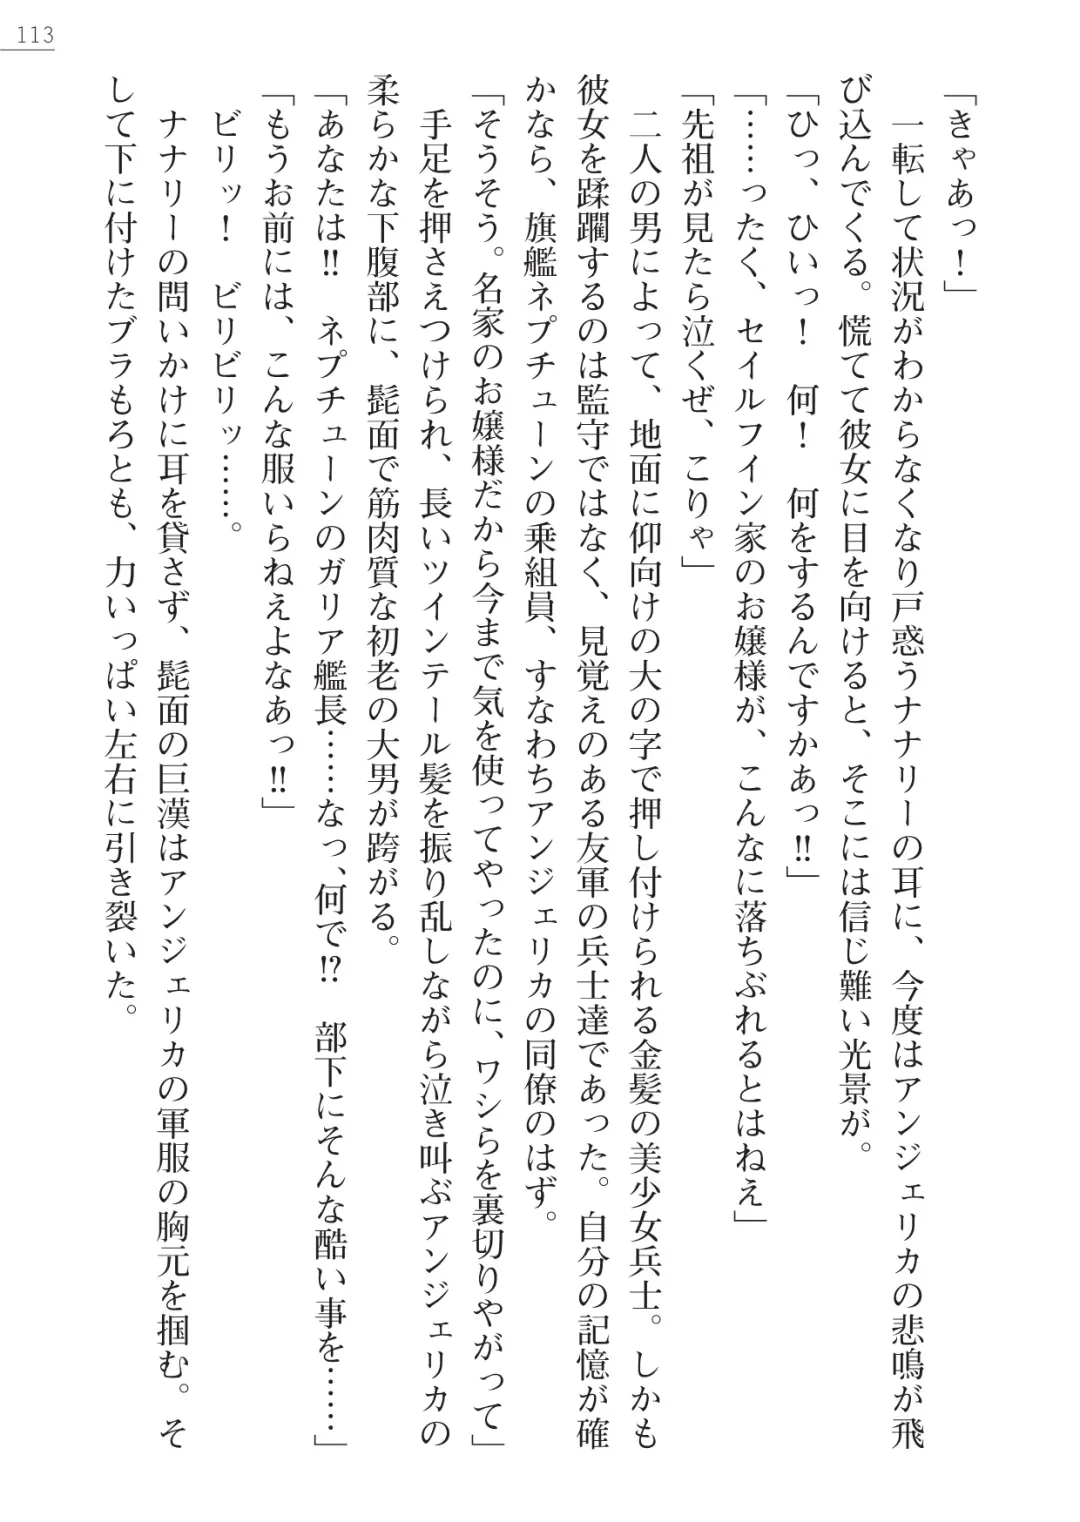 113
「きゃあっ！」
　一転して状況がわからなくなり戸惑うナナリーの耳に、今度はアンジェリカの悲鳴が飛
び込んでくる。慌てて彼女に目を向けると、そこには信じ難い光景が。
「ひっ、ひいっ！　何！　何をするんですかあっ‼」
「……ったく、セイルフィン家のお嬢様が、こんなに落ちぶれるとはねえ」
「先祖が見たら泣くぜ、こりゃ」
　二人の男によって、地面に仰向けの大の字で押し付けられる金髪の美少女兵士。しかも
彼女を蹂躙するのは監守ではなく、見覚えのある友軍の兵士達であった。自分の記憶が確
かなら、旗艦ネプチューンの乗組員、すなわちアンジェリカの同僚のはず。
「そうそう。名家のお嬢様だから今まで気を使ってやったのに、ワシらを裏切りやがって」
　手足を押さえつけられ、長いツインテール髪を振り乱しながら泣き叫ぶアンジェリカの
柔らかな下腹部に、髭面で筋肉質な初老の大男が跨がる。
「あなたは‼　ネプチューンのガリア艦長……なっ、何で⁉　部下にそんな酷い事を……」
「もうお前には、こんな服いらねえよなあっ‼」
　ビリッ！　ビリビリッ……。
　ナナリーの問いかけに耳を貸さず、髭面の巨漢はアンジェリカの軍服の胸元を掴む。そ
して下に付けたブラもろとも、力いっぱい左右に引き裂いた。